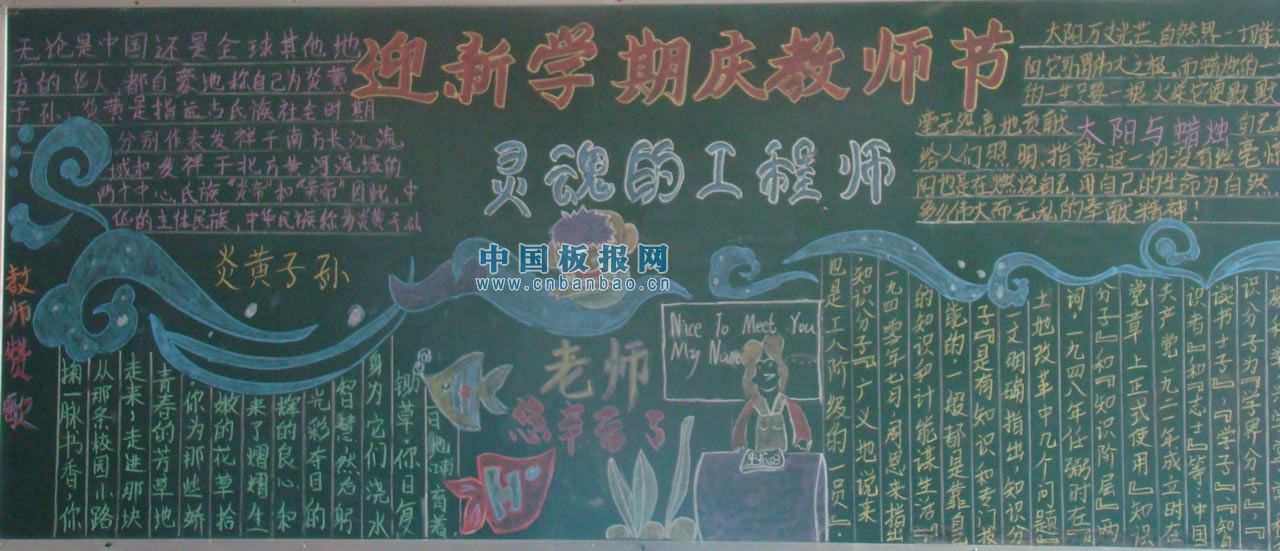 迎新学期庆教师节
灵魂的工程师
无论是中国还是全球其他地
方的华人,都自豪地称自己为炎黄
子孙,炎黄是指远古氏族社会时期
分别作表发祥于南方长江流
域和发祥于北方黄河流域的
两个中心氏族“炎帝”和“黄帝”因此,中
华的主体民族,中华民族称为炎黄子孙
炎黄子孙
太阳与蜡烛
太阳万丈光芒,自然界一切能
的一生只要一根火柴它便默默
毫无怨言地贡献
自己
给人们照明,指路,这一切没有丝毫
阳也是在燃烧自己,用自己的生命为自然
多么伟大而无私的奉献精神!
中国板报网
www.cnbanbao.cn
教师赞歌
育着
锄草,你日复
身为它们浇水
智慧,然后躬
光彩夺目的
辉的良心和
来了熠熠生
嫩的花草拾
你为那些娇
青春的芳草地
走来,走进那块
从那条校园小路
掬一脉书香,你
老师
您辛苦了
Nice To Meet You
My Name
H
识分子为『学界分子』
读书士子』『学子』『智
识者』和『志士』等,中国
共产党一九二一年成立时在
党章上正式使用『知识
分子』和『知识阶层』两
词,一九四八年任弼时在
土地改革中几个问题』
一文明确指出,知识分
子『是有知识和专门技
能的一般都是靠自
的知识和计能谋生活』
一九四零年七月,周恩来指出
知识分子『广义地说来
也是工人阶级的一员』